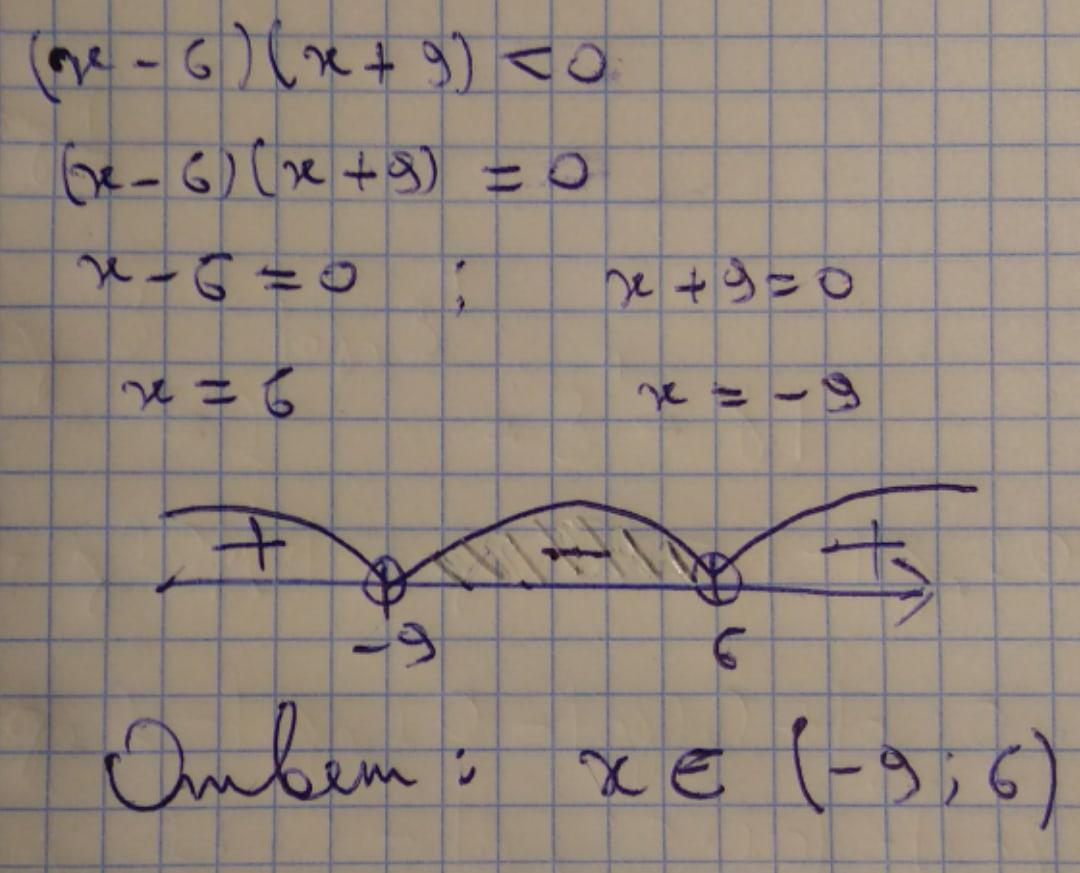 (x - 6)(x + 9) < 0
(x - 6)(x + 9) = 0
x - 6 = 0 ; x + 9 = 0
x = 6 x = -9
+ - +
-9 6
Ответ: x ∈ (-9; 6)